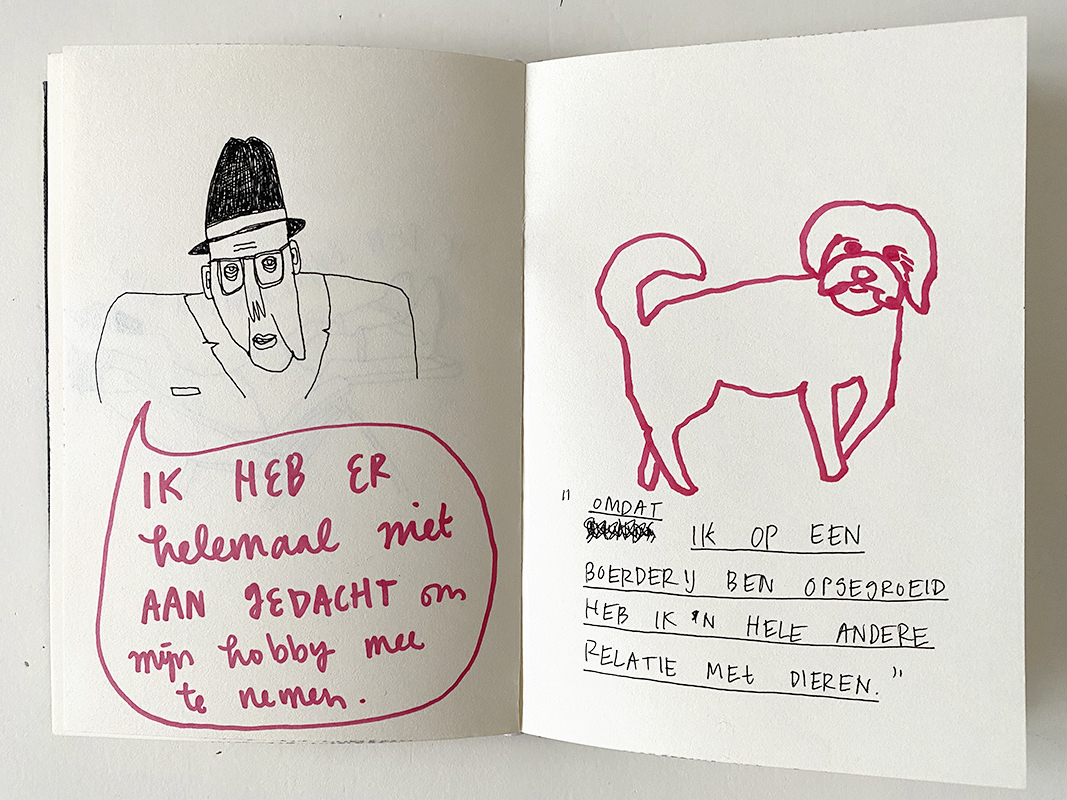 IK HEB ER
helemaal niet
AAN GEDACHT om
mijn hobby mee
te nemen.
" OMDAT
IK OP EEN
BOERDERIJ BEN OPGEGROEID
HEB IK 'N HELE ANDERE
RELATIE MEt DIEREN."